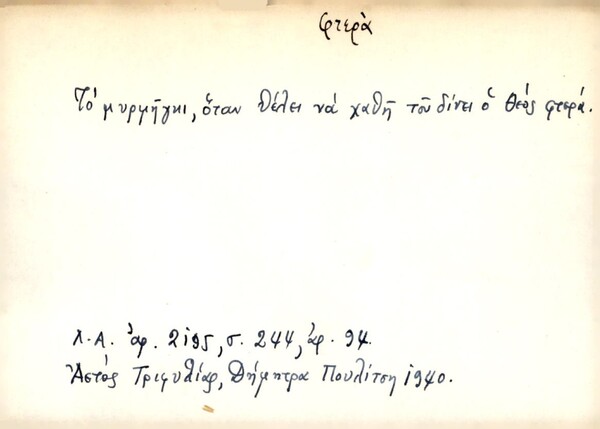 φτερὰ
Τὸ μυρμῆγκι, ὅταν θέλει νὰ χαθῆ τοῦ δίνει ὁ Θεὸς φτερά.
Λ.Α. ἀρ. 2195, σ. 244, ἀρ. 94.
Ἀετὸς Τριφυλίας, Δήμητρα Πουλίτση 1940.